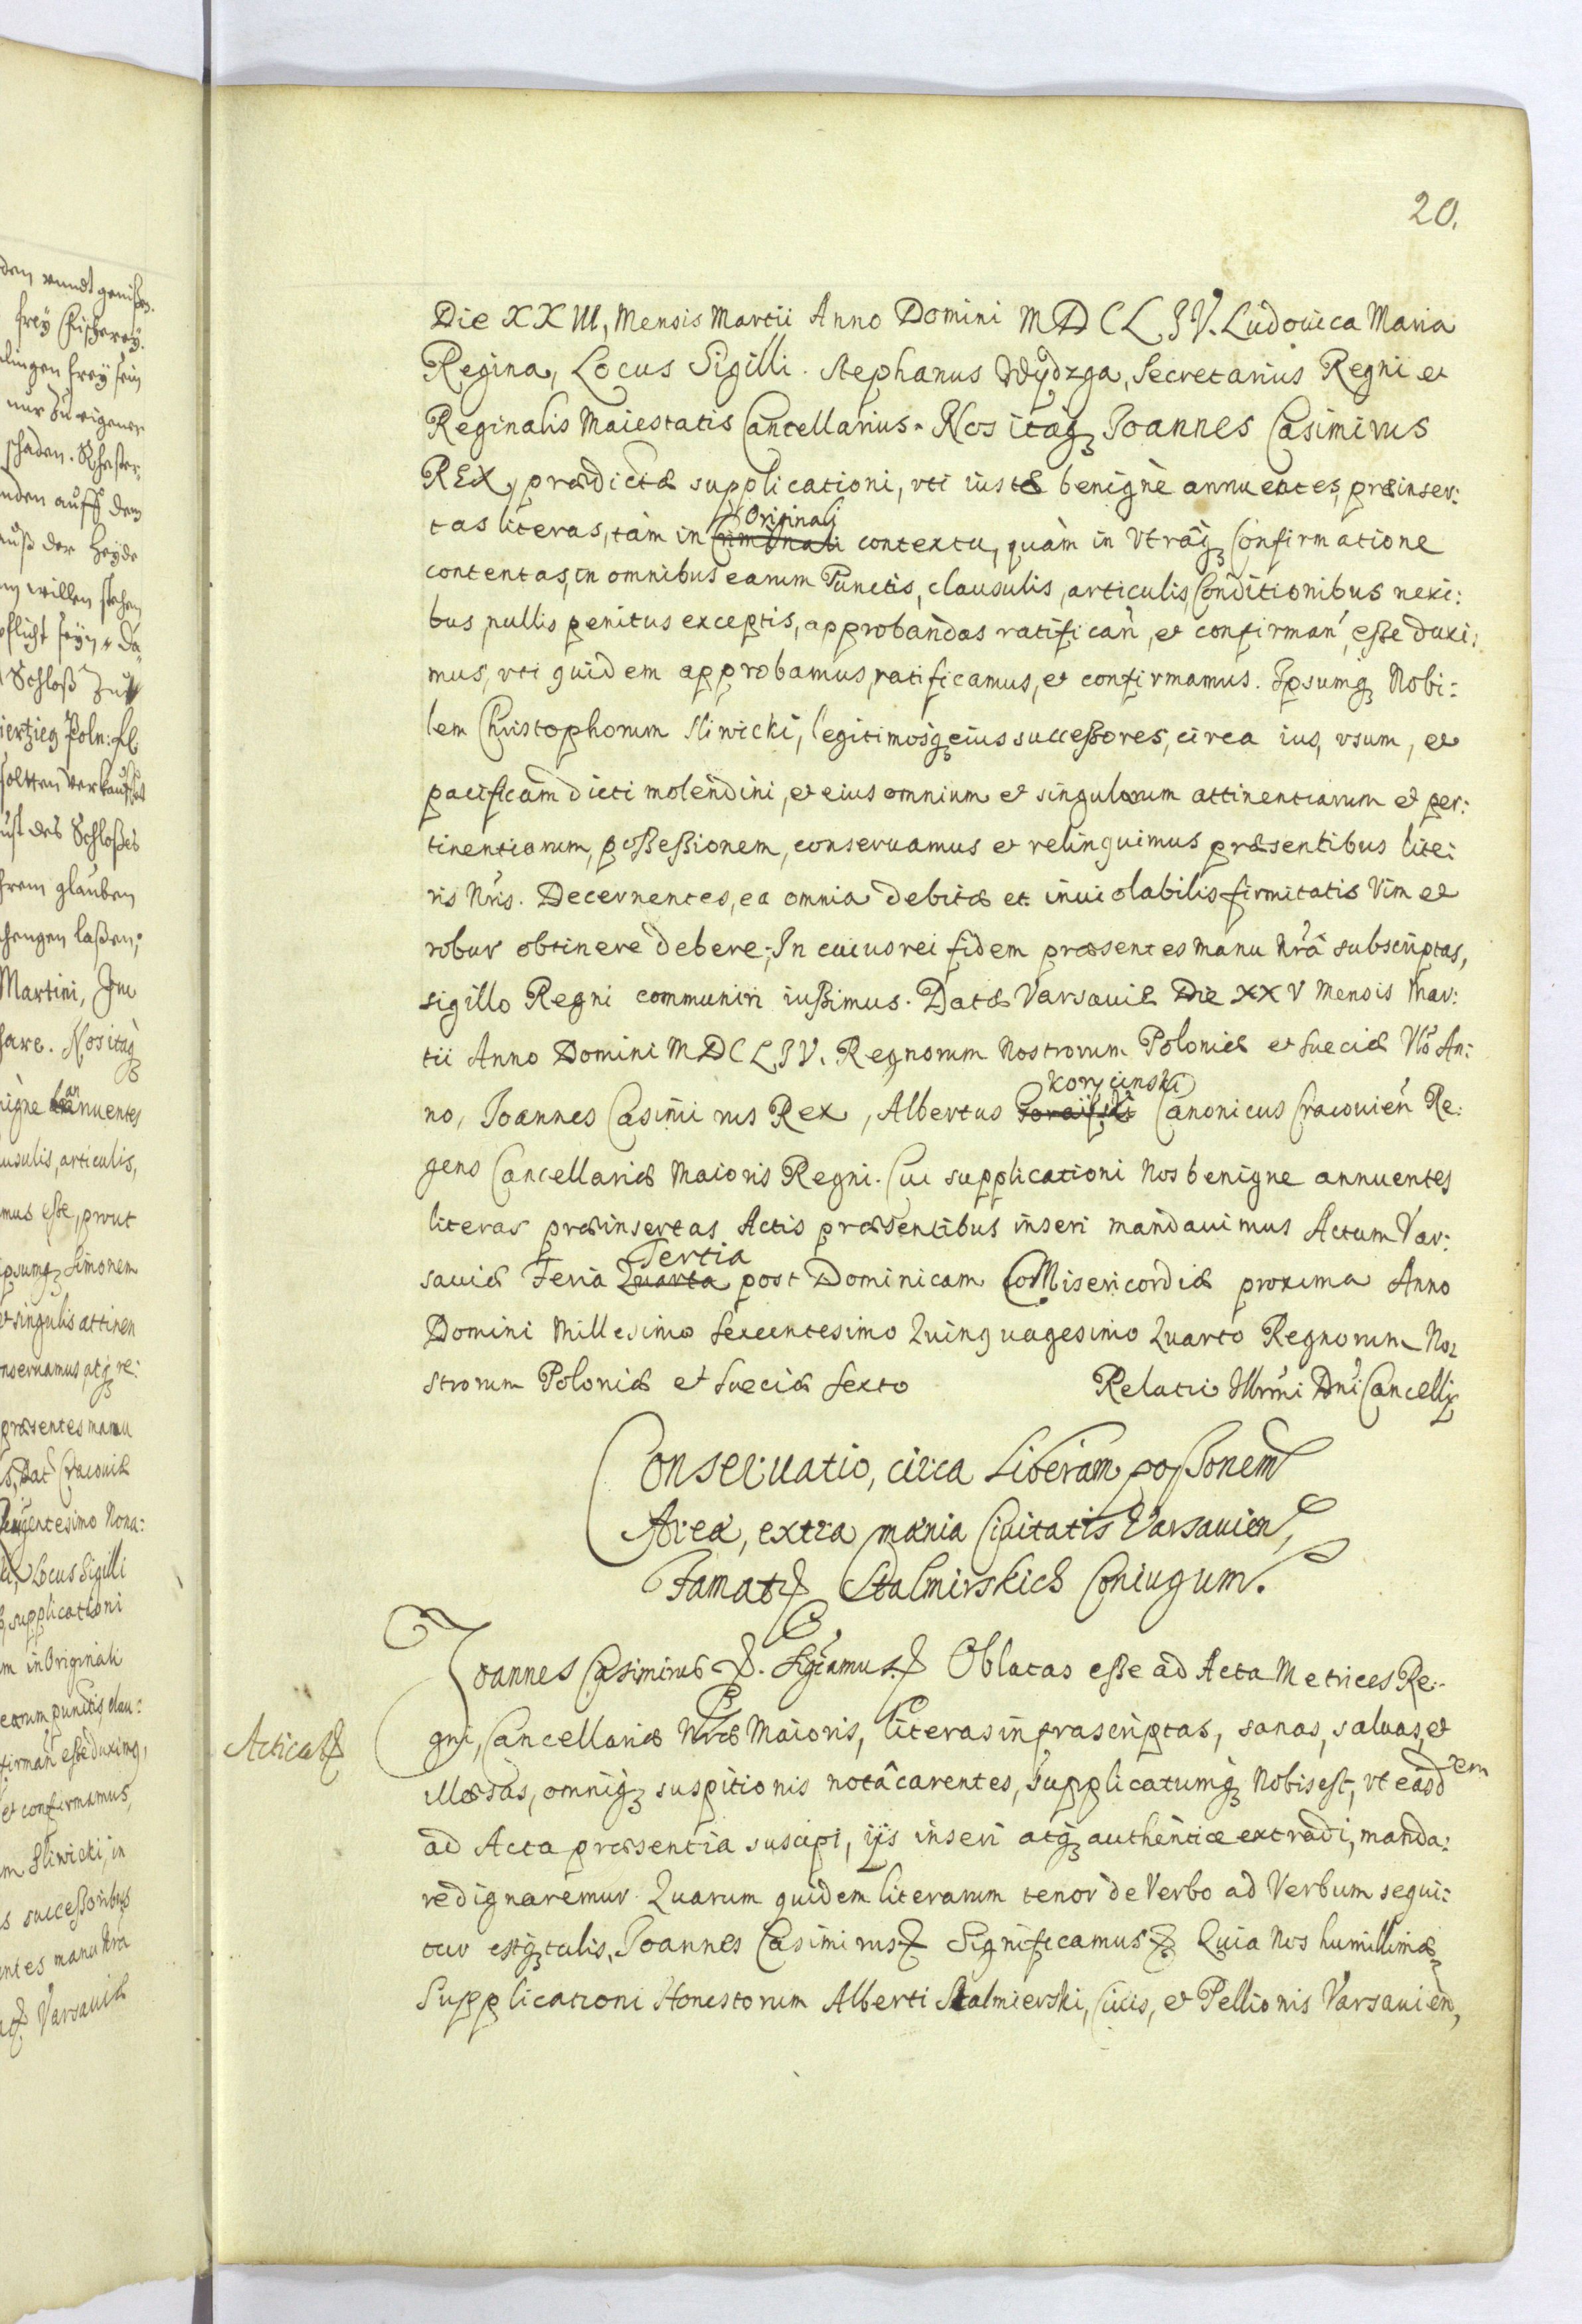 20.
Die XXIII, Mensis Martii Anno Domini MDCLIV. Ludouica Maria
Regina, Locus Sigilli. Stephanus Wydzga, Secretarius Regni et
Reginalis Maiestatis Cancellarius. Nos itaqꝫ Joannes Casimirus
REX, prædictæ supplicationi, vti iustæ benignè annuentes, præinser:
tas literas, tàm in Originali contextu, quàm in Vtrâqꝫ Confirmatione
contentas, in omnibus earum Punctis, clausulis, articulis, Conditionibus nexi:
bus, nullis penitus exceptis, approbandas ratifican, et confirman, esse duxi:
mus, vti quidem approbamus, ratificamus, et confirmamus. Ipsumqꝫ Nobi:
lem Christophorum Sliwicki, legitimosqꝫ eius successores, circa ius, vsum, et
pacificam dicti molendini, et eius omnium et singulorum attinentiarum et per:
tinentiarum, possessionem, conseruamus et relinquimus præsentibus lite:
ris Nris. Decernentes, ea omnia debitæ et inuiolabilis firmitatis Vim et
robur obtinere debere; In cuius rei fidem præsentes manu Nrâ subscriptas,
sigillo Regni communiri iussimus. Datæ Varsauiæ Die XXV Mensis Mar:
tii Anno Domini MDCLIV. Regnorum Nostrorum Poloniæ et Sueciæ VIto An:
no, Joannes Casimirus Rex, Albertus Koryciński Canonicus Cracouien Re:
gens Cancellariæ Maioris Regni. Cui supplicationi Nos benigne annuentes
literas præinsertas Actis præsentibus inseri mandauimus Actum Var:
sauiæ Feria Quarta Tertia post Dominicam Misericordiæ proxima Anno
Domini Millesimo Sexcentesimo Quinquagesimo Quarto Regnorum No:
strorum Poloniæ et Sueciæ Sexto Relatio Illrmi Dni Cancellrÿ
Conseruatio, circa Liberam possonem
Areæ, extra mænia Ciuitatis Varsauien,
Famat Stalmirskich Coniugum.
Joannes Casimirus &. Sigcamus & Oblatas esse ad Acta Metrices Re:
Acticat
gni, Cancellariæ Nræ Maioris, literas infrascriptas, sanas, saluas, et
illæsas, omniqꝫ suspitionis notâ carentes, supplicatumqꝫ Nobis est, vt easdem
ad Acta præsentia suscipi, ijs inseri atqꝫ authenticè extradi, manda:
re dignaremur. Quarum quidem literarum tenor de Verbo ad Verbum sequi:
tur estqꝫ talis. Joannes Casimirus & Significamus & Quia Nos humillimæ
Supplicationi Honestorum Alberti Stalmierski, Ciuis, et Pellionis Varsauien,